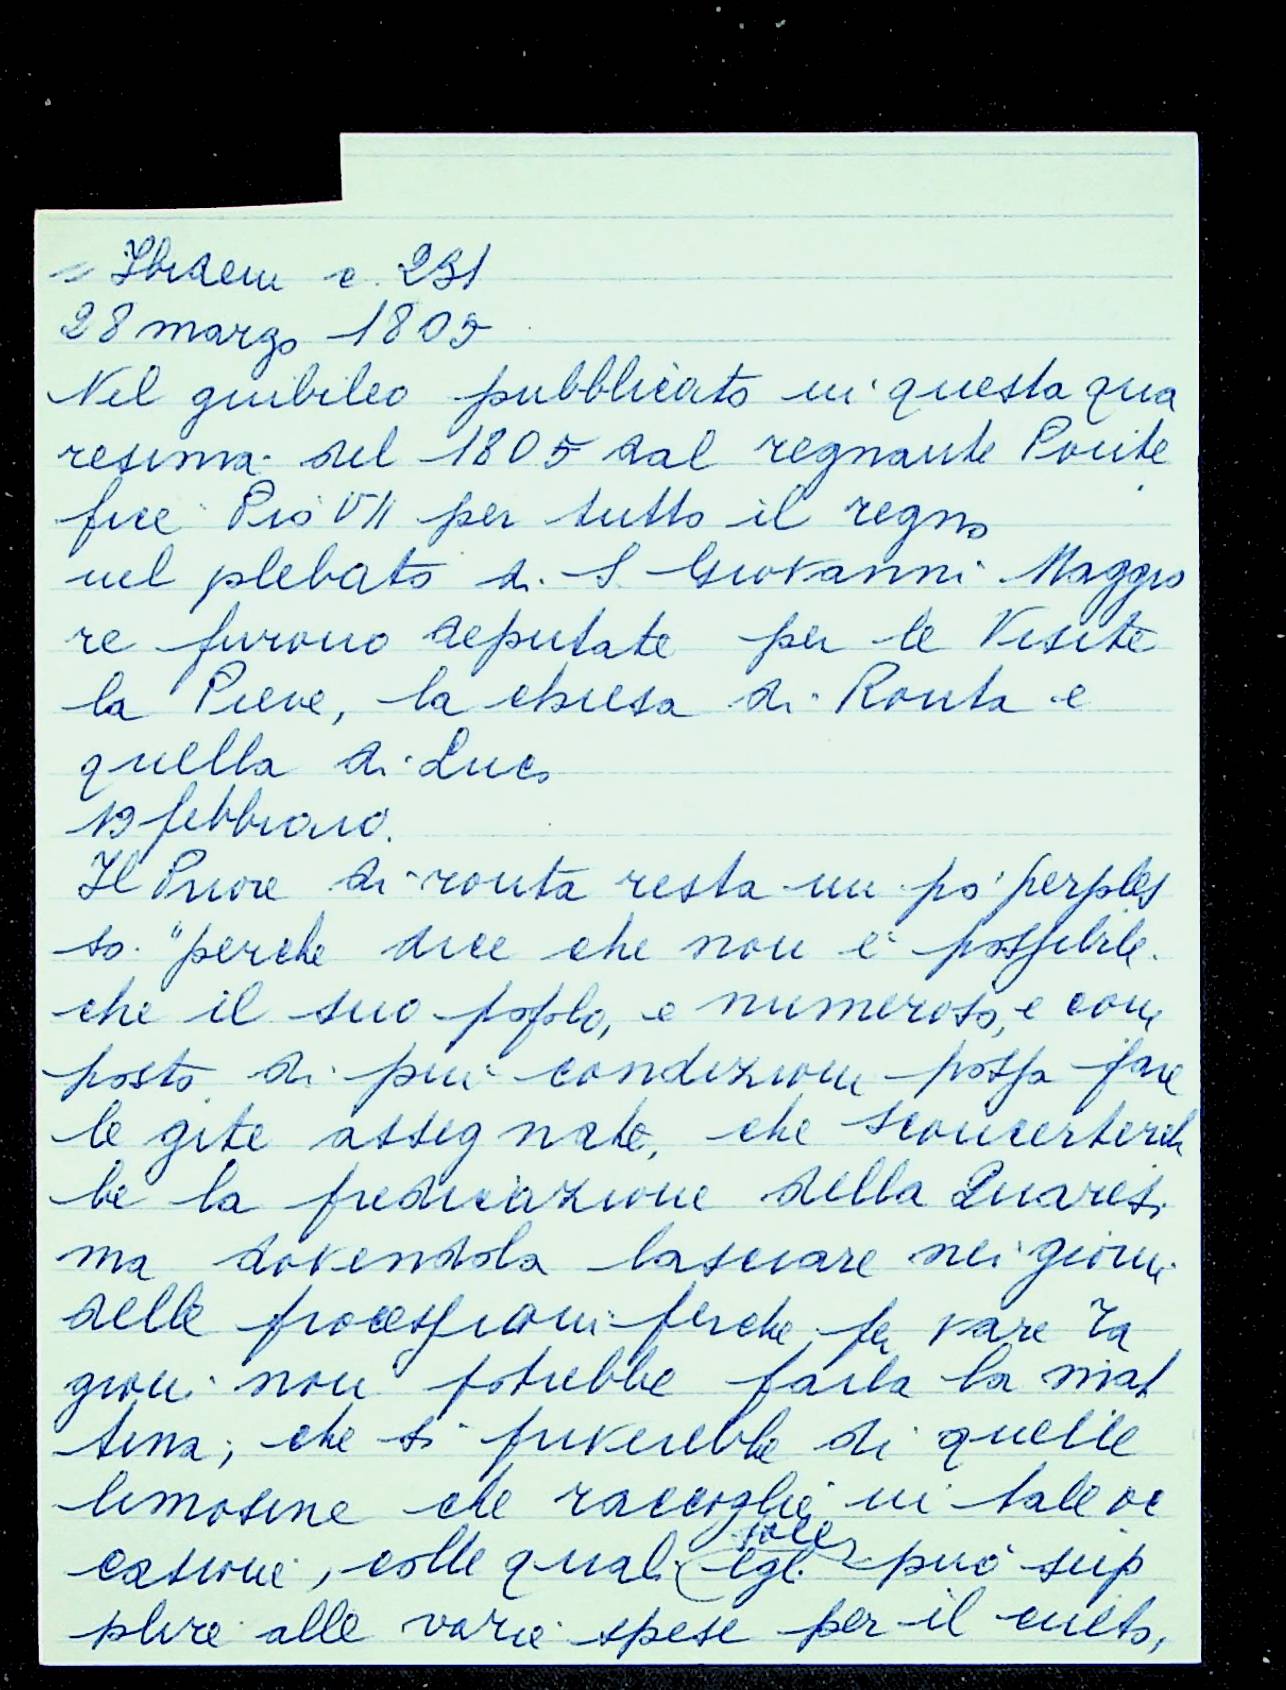 = Ibidem c. 231
28 marzo 1805
Nel giubileo pubblicato in questa qua
resima del 1805 dal regnante Ponte
fice Pio VII per tutto il regno
nel plebato di S Giovanni Maggio
re furono deputate per le Visite
la Pieve, la chiesa di Ronta e
quella di Luco
19 febbraio.
Il Priore di ronta resta un po' perples
so. "perche dice che non è possibile
che il suo popolo, e numeroso, e com
posto di più condizioni possa fare
le gite assegnate, che sconcertereb
be la predicazione della Quaresi
ma dovendola lasciare nei giorni
delle processioni perche per varie ra
gioni non potrebbe farla la mat
tina; che si priverebbe di quelle
limosine che raccoglie in tale oc
casione, colle quali (egli può sup
plire alle varie spese per il culto,